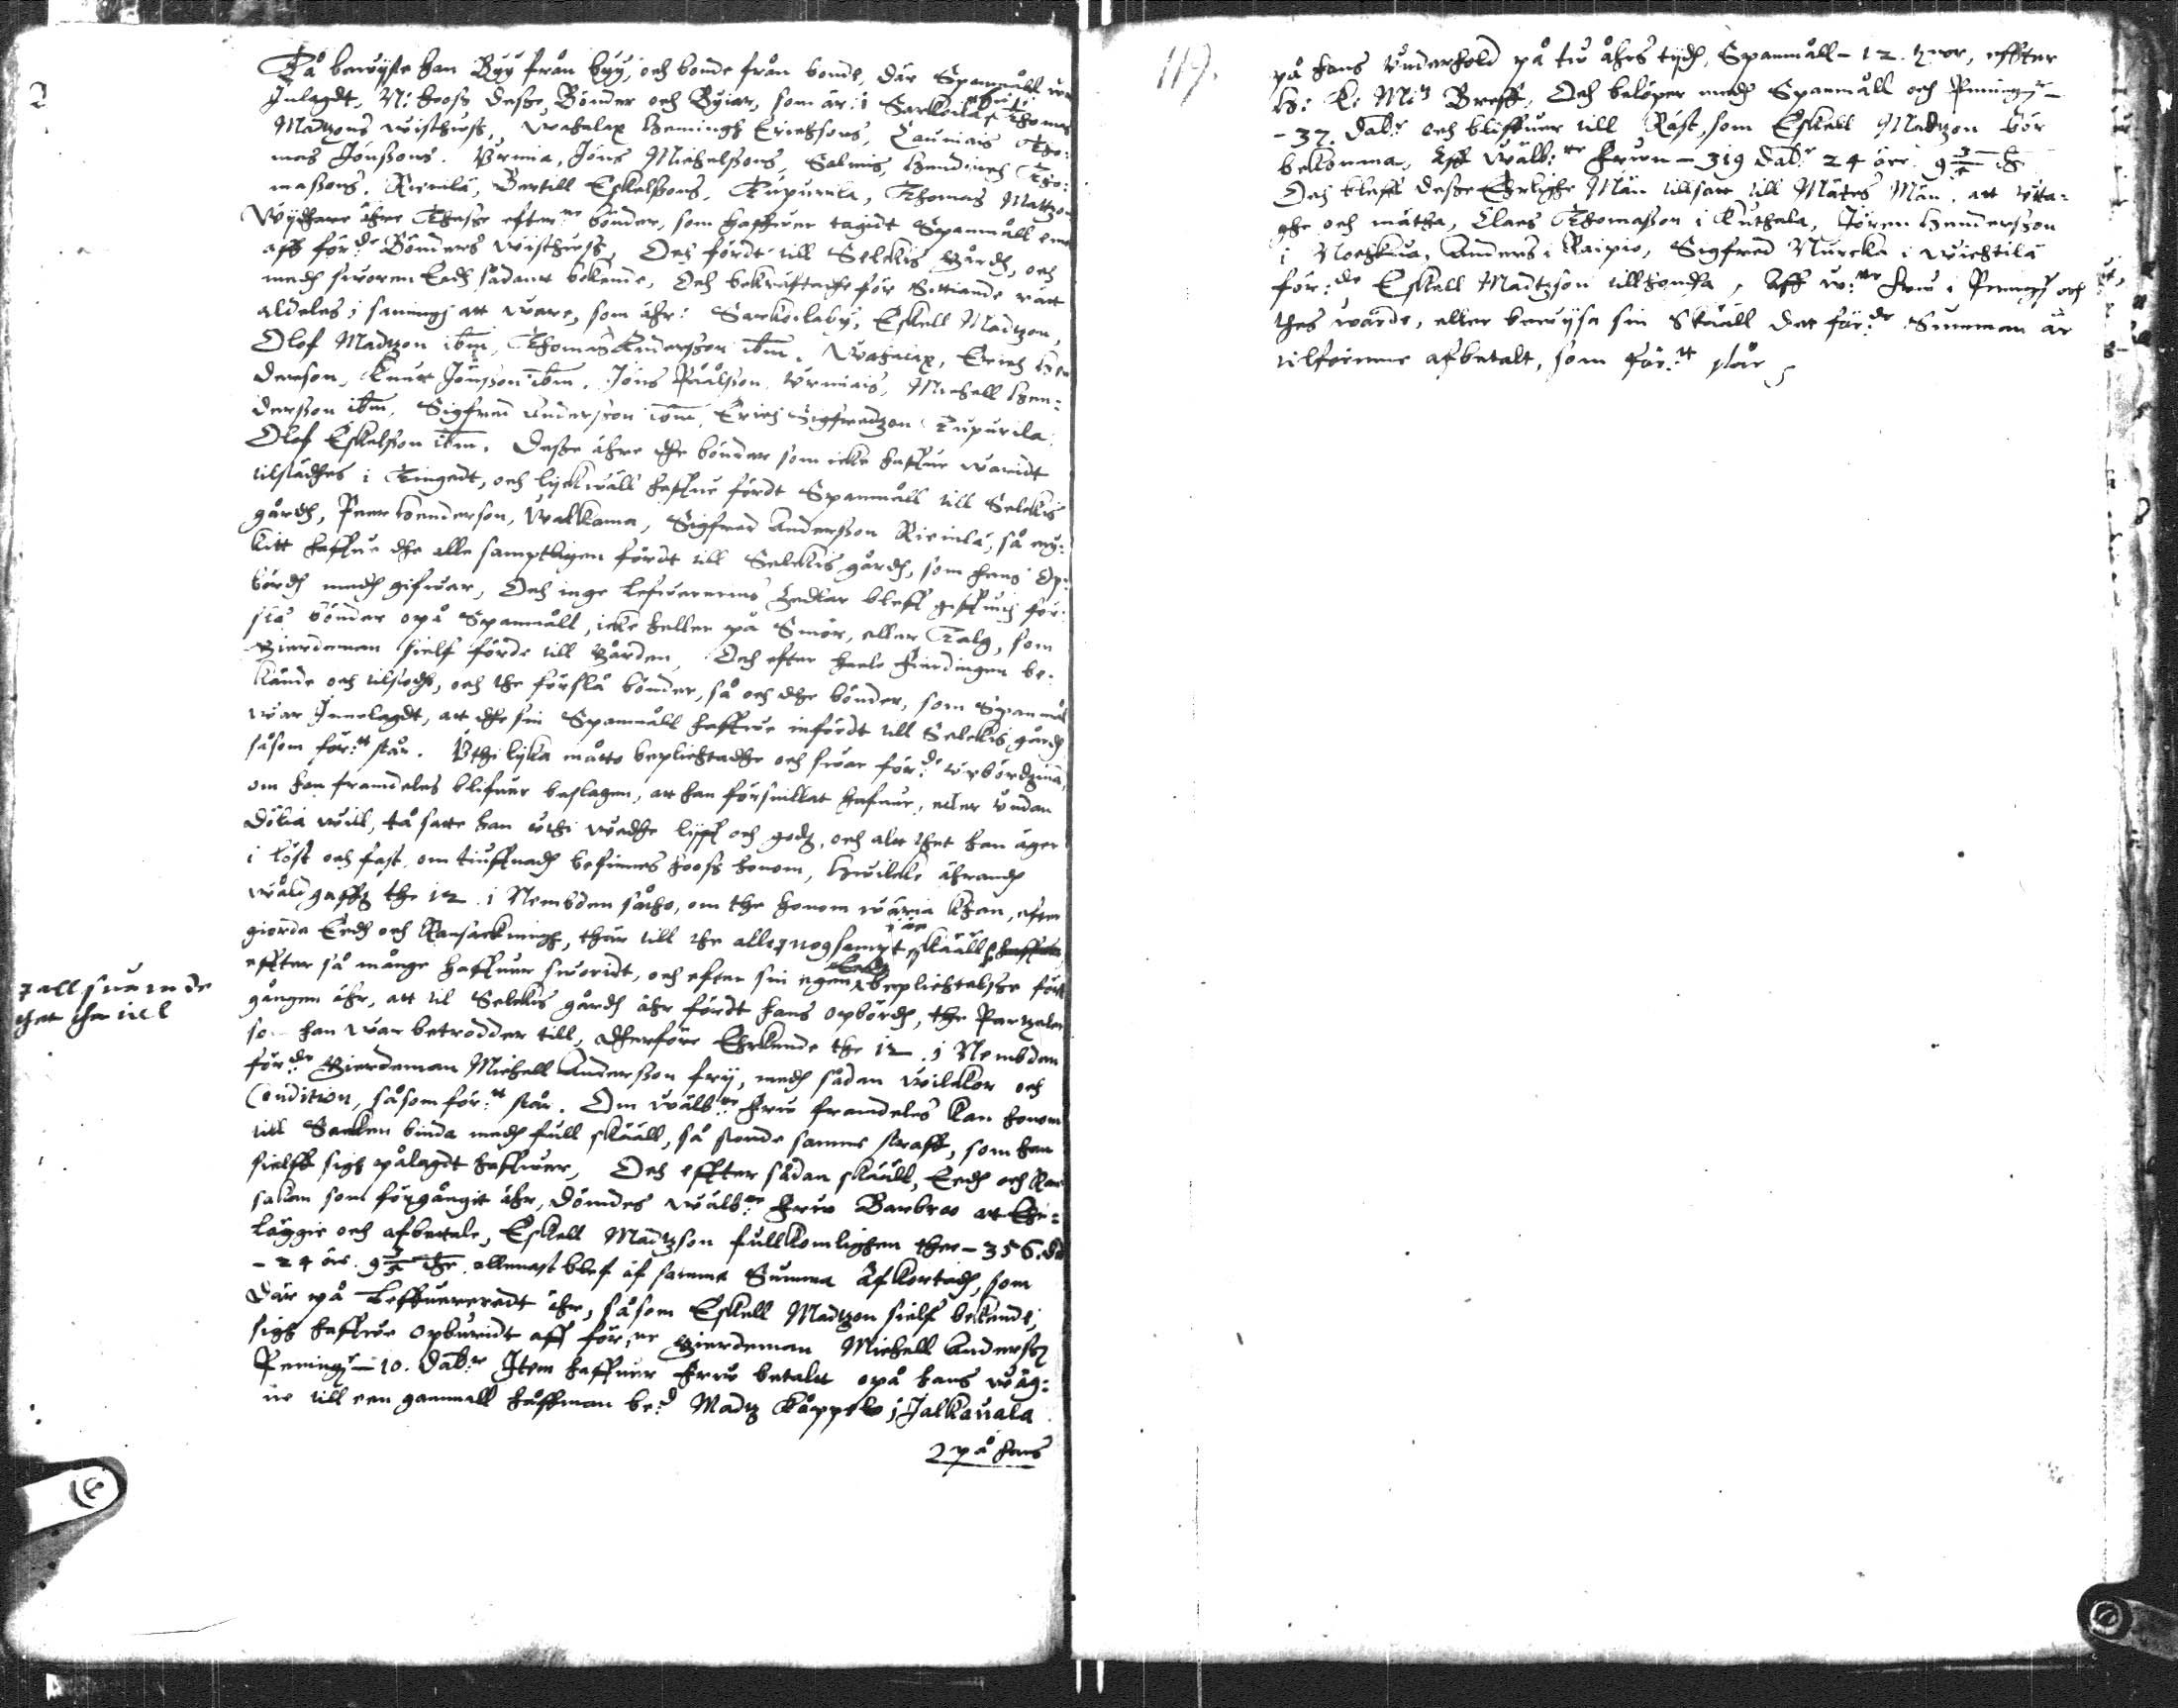 Tå bewyste han Byy från byy, och bonde från bonde, där Spanmåll war
Inlagdt, N: hooss desse Bönder och Byiar, som är: i Sarkoila by Thomas
Madtzons wisthuss, Wahalax Hemingh Erichsons, Launiais Tho:
mas Jönssons. Urmia, Jöns Michelssons, Salmis, Hendrich Tho:
massons, Riemlä, Bertill Eskelssons, Tupurila, Thomas Mattzons
Wydhare ähre Thesse efter:ne bönder, som haffuer tagidt Spanmåll
aff för:de Bönders wisthuss, Och fördt till Selckis gårdh, och
medh sworen Eedh sådant bekände, Och bekräftadhe för Sittiande rätt
aldeles i sanningh att ware, som ähr: Sarkoilaby, Eskell Madtzon,
Olof Madtzon ibm, Thomas Andersson ibm. Wahalax, Erich Hen
dersson, Knut Jönsson ibm. Jöns Påålsson Urmiais, Michell Hen:
dersson ibm, Sigfred Andersson ibm, Erich Sigfredtzon Tupurila,
Olof Eskelsson ibm. Desse ähre the bönder som icke haffue waridt
tilstädhes i Tingedt, och lyckwäll haffue fördt Spanmåll till Selckis
gårdh, Peer Henderson, Walkama, Sigfred Andersson Riemilä, så my:
kitt haffue dhe alle samptligen fördt till Selckis gårdh, som hans Op:
bördh medh gifwar, Och inge Lefwerenns Zedlar bleff giffuith för:
sto bönder opå Spanmåll, icke heller på Smör, eller Talg, som
Gierdeman sielf förde till Gården, Och efter heele fierdingen be:
kände och tilstodh, och the förslå bönder, så och dhe bönder, som Spanmål
war Innelagdt, att dhe sin Spanmåll haffue infördt till Selckis gårdh
såsom för:tt står. Uthi lyka måtto beplichtadhe och swar för:de
om han framdeles blifuer beslagen, att han försnillat hafuer, eller undan
dölia will, tå satte han uthi wedhe lyff och godz, och alt thet han äger
i löst och fast, om tiuffnadh befinnes hooss honom, Hwilcke ährandh
wåld gaffz the 12 i Nembden såtho, om the honom wäria kan, efter
giorde Eedh och Ransackningh, thär till the alle noghsampt skääll
effter så många haffuer sworidt, och efter sin egen Eedh beplichtelsse
gången ähr, att til Selckis gårdh ähr fördt hans opbördh, the Partzeler
som han war betrodder till, dherföre Ehrkende the 12 i Nembden
för:de Gierdeman Michell Andersson frij, medh sådan wilckor och
Condition, såsom för:tt står. Om wälb:ne fruu framdeles kan honom
till Sacken binda medh full skääll, så stonde samma straff, som han
sielff sigh pålagdt haffwer, Och effter sådan skääll, Eedh och Ran
sakan som förgångit ähr, dömdes wälb:ne fruu Barbro att Ehr=
läggie och afbetale, Eskell Madtzson fullkomlighen ther – 356. dal
– 24 öre. 9 3/5 the allenast blef af samma Summa Afkortadh, som
där på Leffuereredt ähr, såsom Eskell Madtzon sielf bekende,
sigh haffue opburidt aff för:ne Gierdeman Michell Anderss
Peningr – 10. Dal:r Item haffuer Fruu betalt opå hans wäg:
ne till een gammall hoffman be:d Madtz Kåppelo i Jalkauala
2 på hans
7 all suarnde
thet ther till
119.
på hans Underhold på tw åhrs tydh, Spanmåll – 12. tnor, effter
H: K: M:tz Breff, Och belöper medh Spanmåll och Peningr –
– 37. Dal:r och bliffuer till Räst, som Eskell Madtzon bör
bekomma, Aff Wälb:ne Fruu – 319 dal:r 24 öre. 9 3/5
Och bleff desse Ehrlighe Män tillsatt till Mätes Män, att utta=
ghe och mätha, Claes Thomasson i Kuthala, Jören Hendersson
i Nochkua, Anders i Raipio, Sigfred Nurcka i Wichtilä
för:de Eskell Madtzson tillhonda, Aff w:ne Fru i Peningr och
thes wärde, eller bewysa sin Skääll dett för:de Summan är
tilförenne afbetalt, som för:tt står